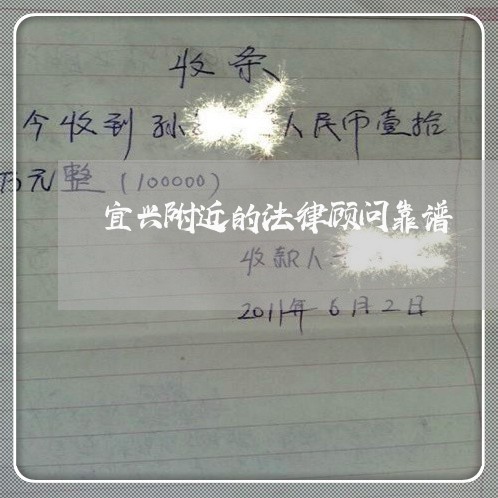 收条
今收到孙 人民币壹拾
万元整（100000）
宜兴附近的法律顾问靠谱
收款人
2011年6月2日